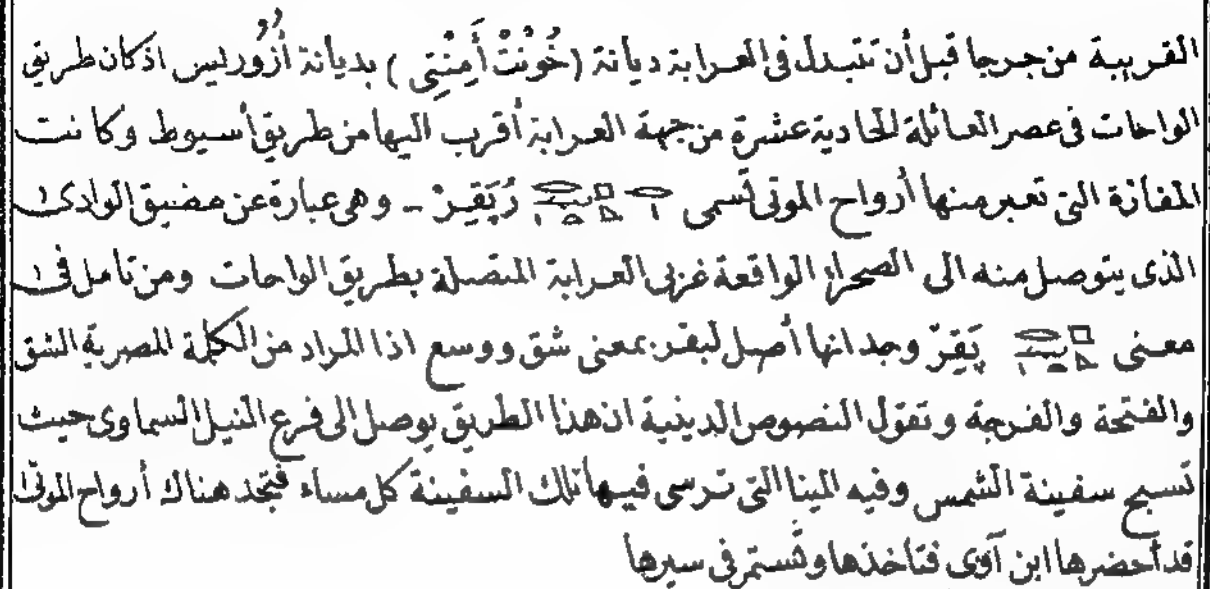 القريبة من جرجا قبل أن تتبدل في العرابة ديانة (خُونْتْ أَمِنْتِى) بديانة أُزُورليس اذ كان طريق
الواحات فى عصر العائلة الحادية عشرة من جهة العرابة أقرب اليها من طريق أسيوط وكانت
المفازة التى تعبر منها أرواح الموتى تسمى رُپَقِرْ - وهى عبارة عن مضيق الوادى
الذى يتوصل منه الى الصحراء الواقعة غربى العرابة المتصلة بطريق الواحات ومن تامل فى
معنى پَقِرّ وجد انها أصل لبقر بمعنى شق ووسع اذا المراد من الكلمة المصرية الشق
والفتحة والفرجة وتقول النصوص الدينية ان هذا الطريق يوصل الى فرع النيل السماوى حيث
تسبح سفينة الشمس وفيه المينا التى ترسى فيها تلك السفينة كل مساء فتجد هناك أرواح الموتى
قد أحضرها ابن آوى فتاخذها وتستمر فى سيرها